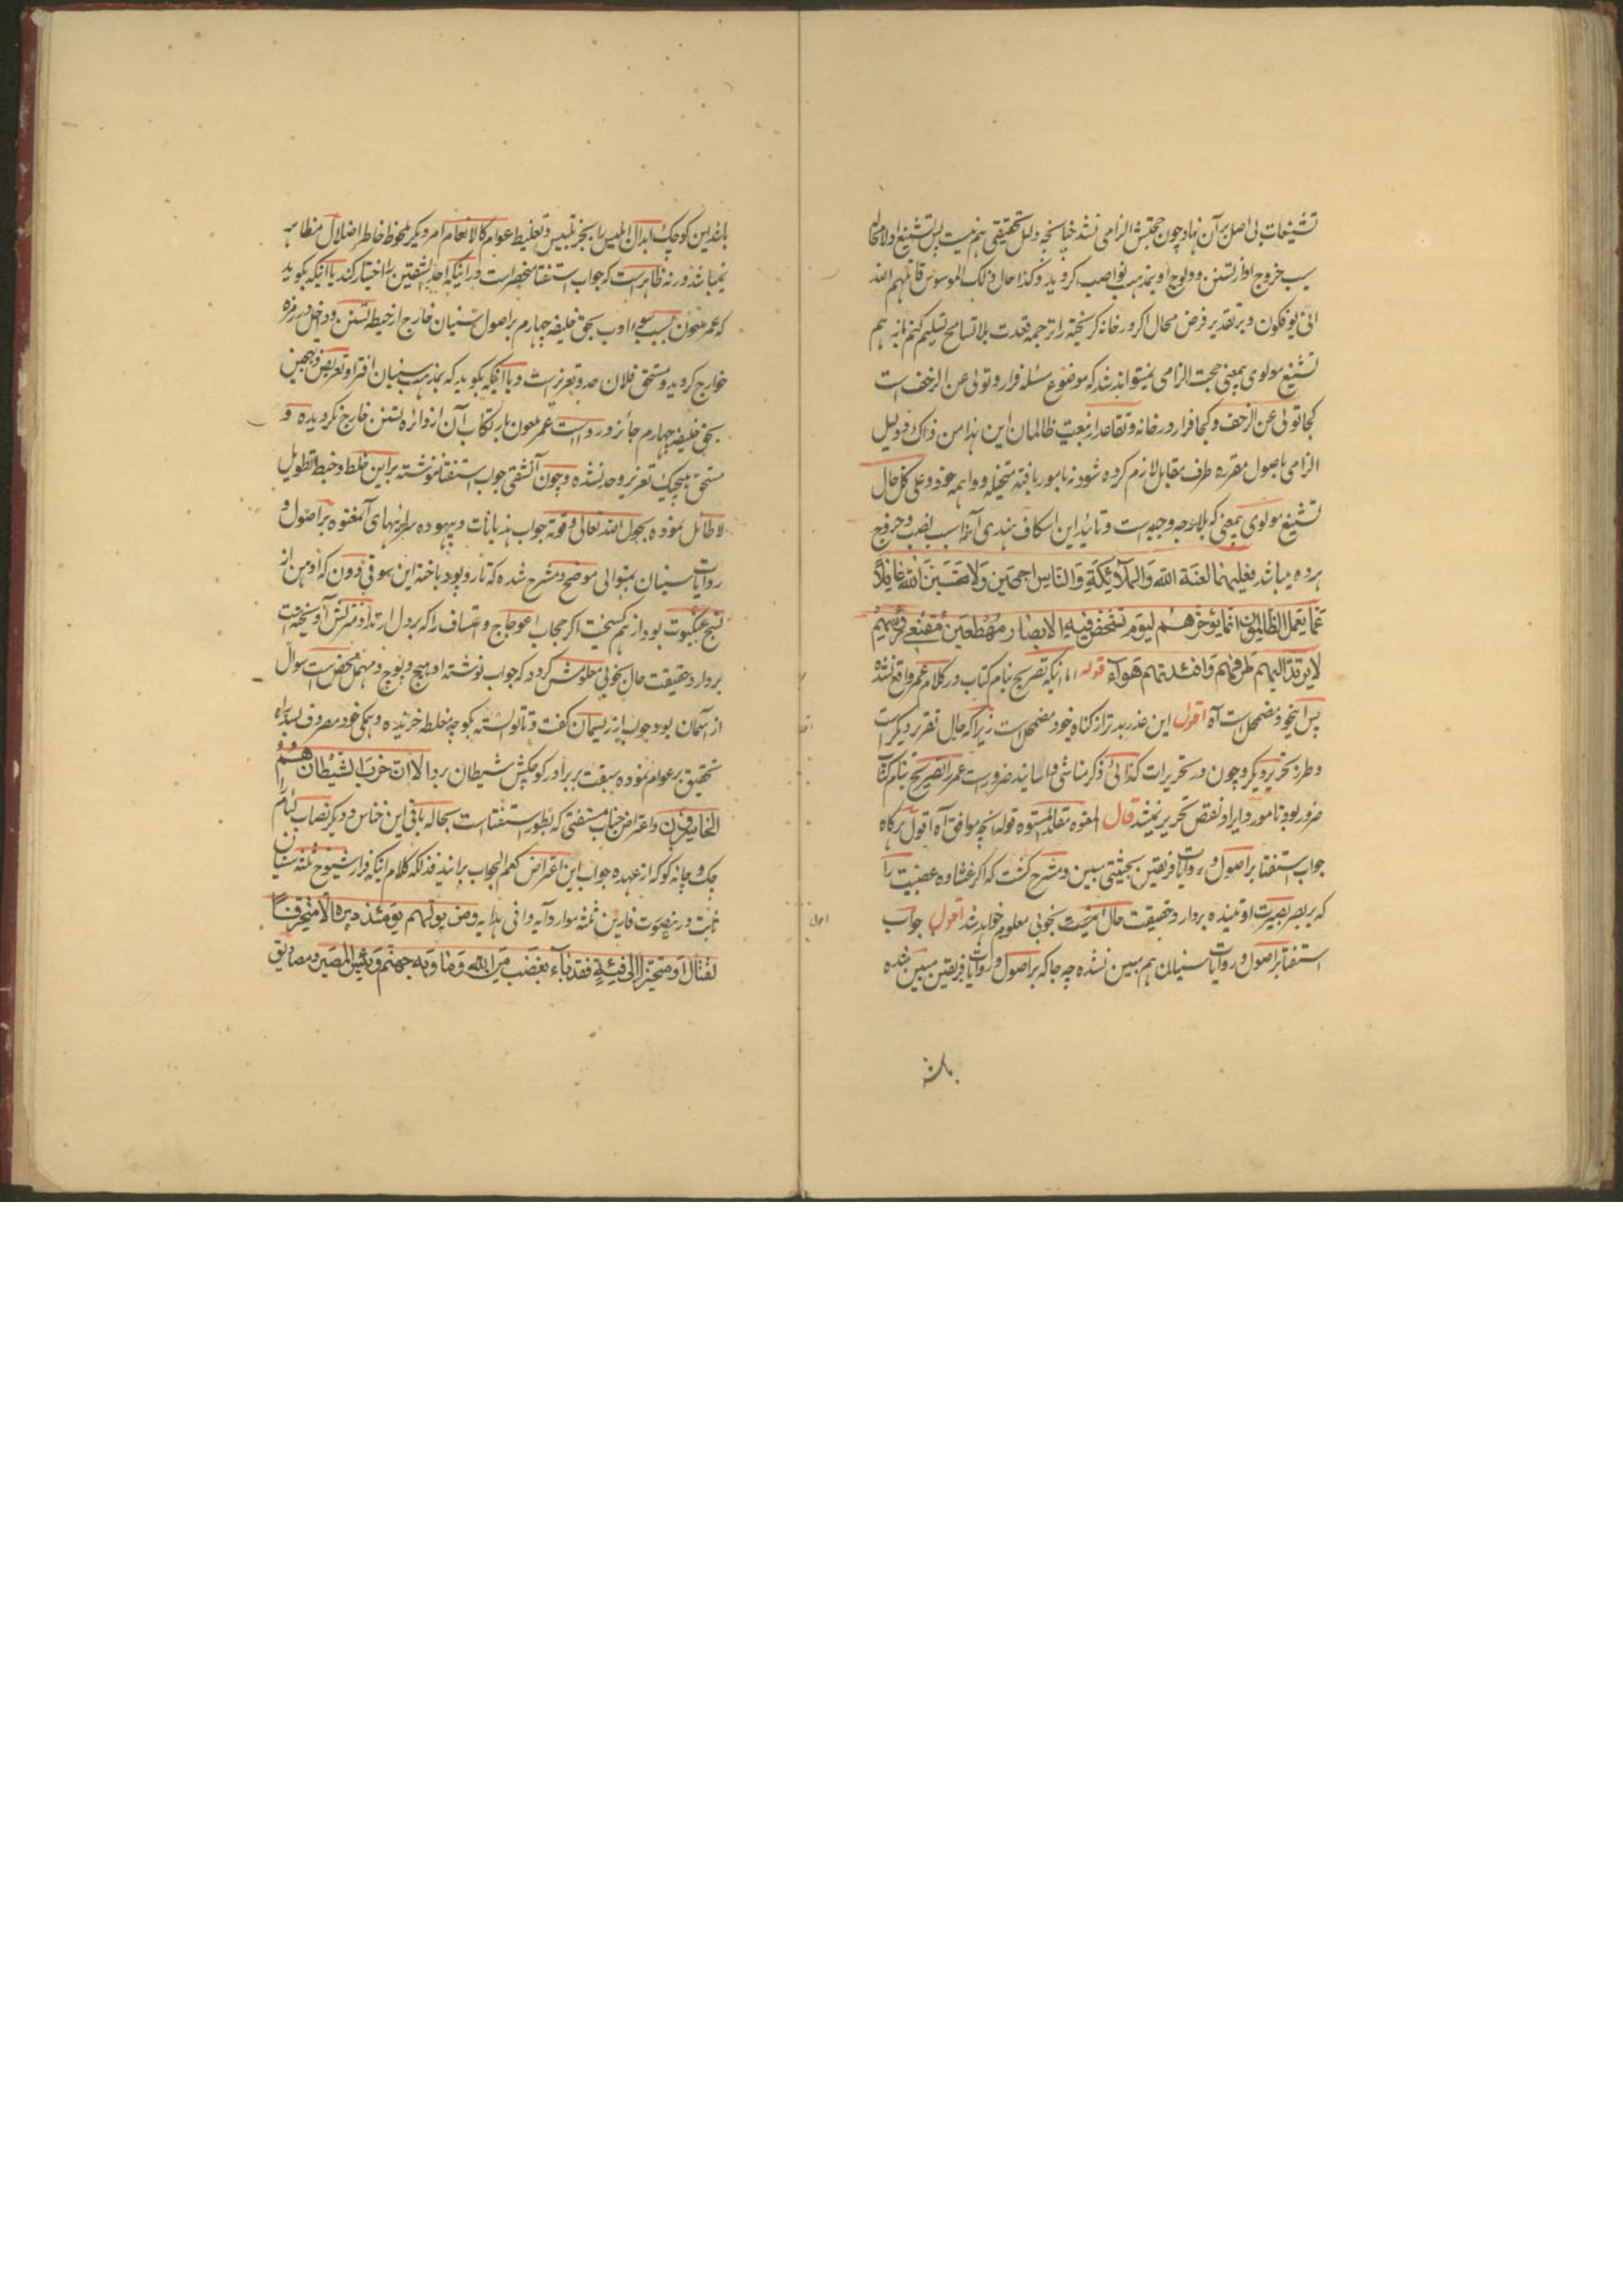 تشنیعات بی اصل بر آن نهاد و چون حجتش الزامی نشد چنانچه دلیل تحقیقی هم نیست پس تشنیع او لا محاله
سبب خروج او از تسنن و ولوج او بمذهب نواصب گردید و کذا حال ذلک الموسوس قاتلهم الله
انی یؤفکون و بر تقدیر فرض محال اگر در خانه گریخته را ترجمه قعدت بلا تسامح تسلیم کنم باز هم
تشنیع مولوی بمعنی حجت الزامی نمیتواند شد که موضوع مسئله فرار و تولی عن الزحف است
کجا تولی عن الزحف و کجا فرار در خانه و تقاعد از بیعت ظالمان این هذا من ذاک و دلیل
الزامی باصول مقرره طرف مقابل لازم کرده شود نه بامور بافته متخیله و واهمه خود و علی کل حال
تشنیع مولوی بمعنی که بلا وجه وجیه است و تائید این اسکاف هندی آنرا سبب نصب و خروج
هر دو میباشد فعلیهما لعنة الله والملائکة والناس اجمعین ولا تحسبن الله غافلا
عما یعمل الظالمون انما یؤخرهم لیوم تشخص فیه الابصار مهطعین مقنعی رؤسهم
لا یرتد الیهم طرفهم وافئدتهم هواء قوله اما اینکه تصریح بنام کتاب در کلام عمر واقع نشده
پس اینخود مضمحل است آه اقول این عذر بدتر از گناه خود مضمحل است زیرا که حال تقریر دیگر است
و طرز تحریر دیگر و چون در تحریرات کذائی ذکر مناشی و اسانید ضرور است عمر را تصریح بنام کتاب
ضرور بود تا مورد ایراد نقض تحریر نمیشد قال المعتوه مقلد المستوه قوله آنچه موافق آه اقول هرگاه
جواب استفتا بر اصول و روایات فریقین بحیثیتی مبین و مشرح گشت که اگر غشاوه عصبیت را
که بر بصر بصیرت او تنیده بردارد حقیقت حال بخوبی معلوم خواهد شد اقول جواب
استفتا بر اصول و روایات سنیان هم مبین نشده چه جا که بر اصول و روایات فریقین مبین شده
باشد
باشد این کوچک ابدال ابلیس را بجز تلبیس و تغلیط عوام کالانعام امر دیگر ملحوظ خاطر اضلال مظاهر
نمیباشد ورنه ظاهر است که جواب استفتا منحصر است در اینکه احد الشقین را اختیار کند یا اینکه بگوید
که عمر ملعون بسبب سوء ادب بحق خلیفه چهارم بر اصول سنیان خارج از حیطه تسنن و داخل در زمره
خوارج گردید و مستحق فلان حد و تعزیر است و یا اینکه بگوید که بمذهب سنیان افترا و تعریض و تهجین
بحق خلیفه چهارم جائز و رواست عمر ملعون بارتکاب آن از دائره تسنن خارج نگردیده و
مستحق هیچیک تعزیر و حد نشده و چون آن شقی جواب استفتا ننوشته بر این خلط و خبط تطویل
لا طائل نموده بحول الله تعالی و قوته جواب هذیانات و بیهوده سرائیهای آن معتوه بر اصول و
روایات سنیان بمنوالی موضح و مشرح شده که تار و پود باخته این سوقی دون که اوهن از
نسج عنکبوت بود از هم گسیخت اگر حجاب اعوجاج و اعتساف را که بر دل ارتداد منزلش آویخته است
بردارد حقیقت حال بخوبی معلومش گردد که جواب نوشته او هیچ و پوچ و مهمل محض است سوال
از آسمان بود جواب از ریسمان گفت و تا توانسته بکوچه غلط خزیده و همگی خود مصروف بسد راه
تحقیق بر عوام نموده سبقت بر برادر کوچکش شیطان برد الا ان حزب الشیطان هم
الخاسرون و اعتراض جناب مستفتی که بطور استفتا است بحاله باقی این خناس و دیگر نصاب لئام را
چک و چانه کو که از عهده جواب این اعتراض کعم الجواب برایند فذلکه کلام اینکه فرار شیوخ ثلثه سنیان
ثابت در ینصورت فارین ثلثه موارد آیه وافی هدایه ومن یولهم یومئذ دبره الا متحرفا
لقتال او متحیزا الی فئة فقد باء بغضب من الله وماویه جهنم وبئس المصیر و مصادیق